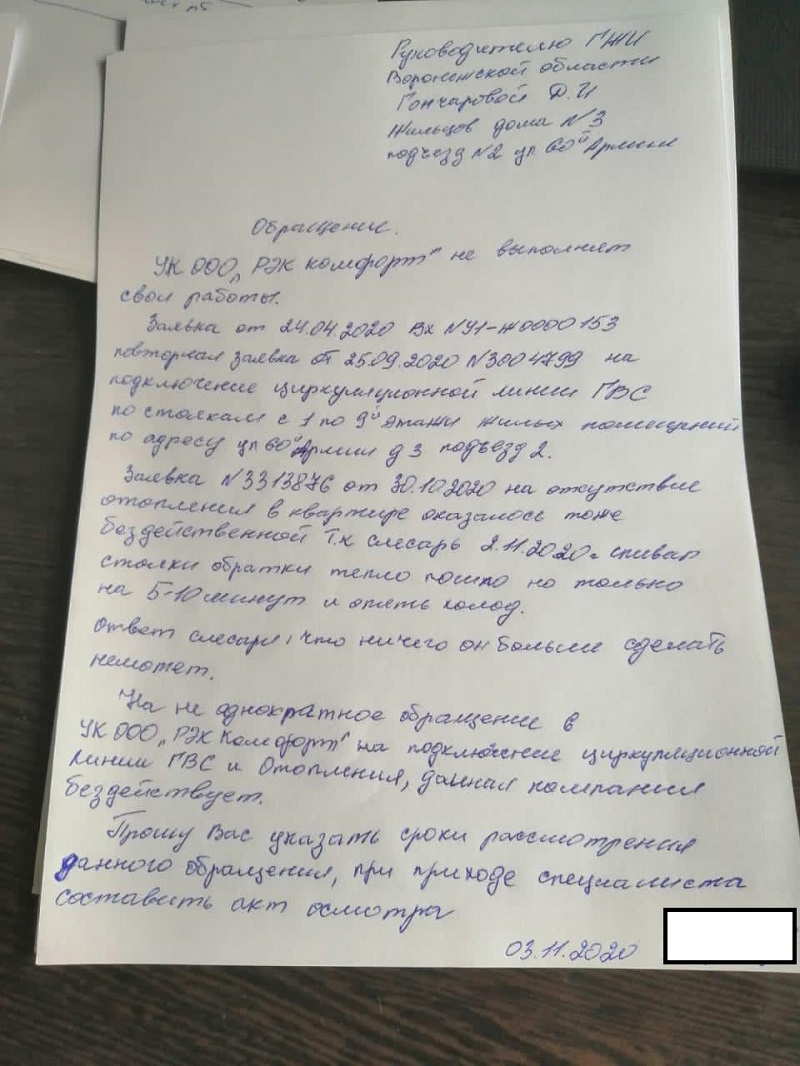 Руководителю ГЖИ
Воронежской области
Гончаровой Д.И
Жильцов дома N3
подъезд N2 ул 60й Армии
Обращение.
УК ООО „РЭК комфорт" не выполняет
свои работы.
Заявка от 24.04.2020 Вх N У1-Ж0000153
повторная заявка от 25.09.2020 N3004799 на
подключение циркуляционной линии ГВС
по стоякам с 1 по 9й этажи жилых помещений
по адресу ул 60й Армии д 3 подъезд 2.
Заявка N3313876 от 30.10.2020 на отсутствие
отопления в квартире оказалось тоже
бездейственной т.к слесарь 2.11.2020г. сливал
стояки обратки тепло пошло но только
на 5-10 минут и опять холод.
ответ слесаря, что ничего он больше сделать
неможет.
На не однократное обращение в
УК ООО „РЭК Комфорт" на подключение циркуляционной
линии ГВС и Отопления, данная компания
бездействует.
Прошу Вас указать сроки рассмотрения
данного обращения, при приходе специалиста
составить акт осмотра
03.11.2020